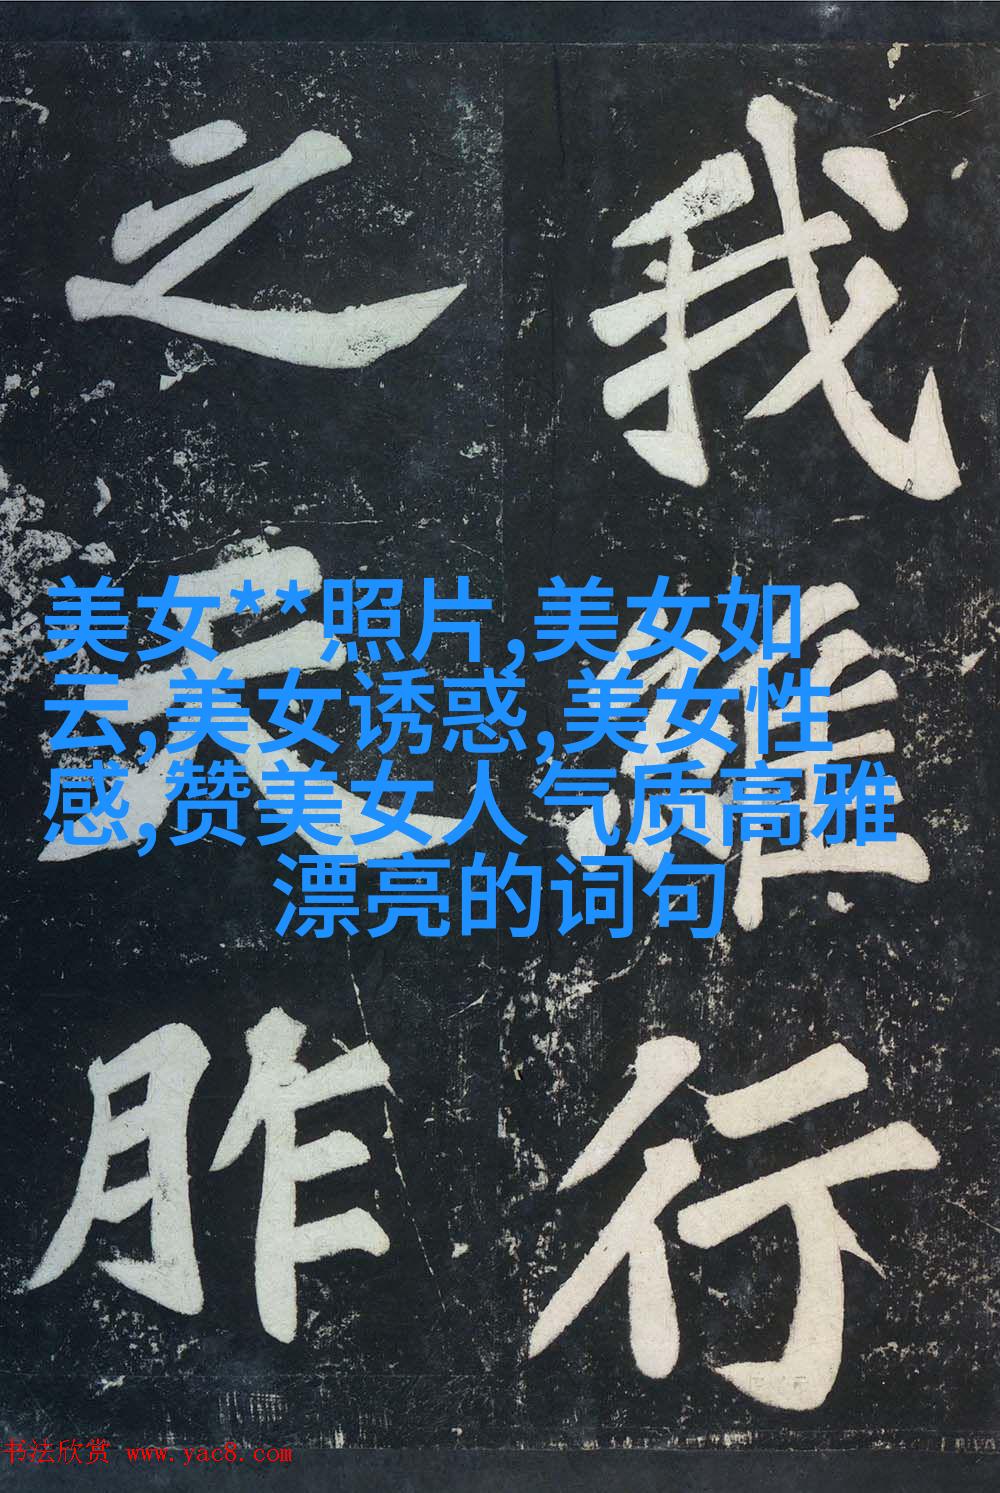 我行
之天胙
美女**照片,美女如
云,美女诱惑,美女性
感,赞美女人气质高雅
漂亮的词句
书法欣赏 www.yac8.com